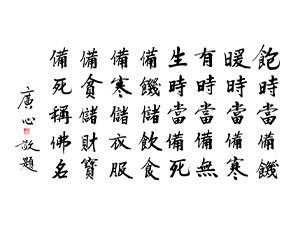 飽時當備饑
暖時當備寒
有時當備無
生時當備死
備饑儲飲食
備寒儲衣服
備貧儲財寶
備死稱佛名
廣心敬題